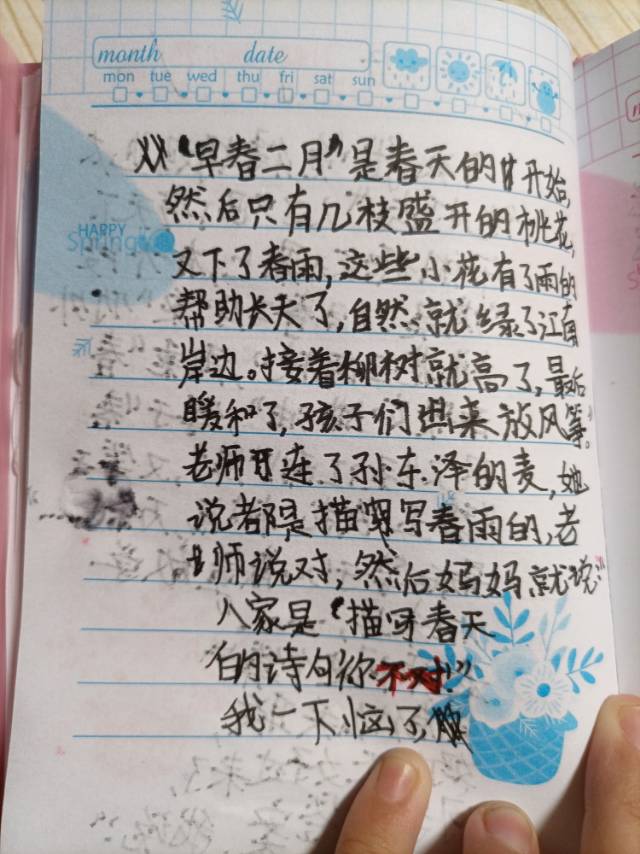 month date
mon tue wed thu fri sat sun
"早春二月"是春天的开始,
然后只有几枝盛开的桃花,
又下了春雨,这些小花有了雨的
帮助长大了,自然就绿了江南
岸边。接着柳树就高了,最后
暖和了,孩子们出来放风筝。"
HAPPY
Spring
老师连了孙东泽的麦,她
说都是描写春雨的,老
师说对,然后妈妈就说:"
人家是"描写春天
的诗句你不对!"
我一下恼了,